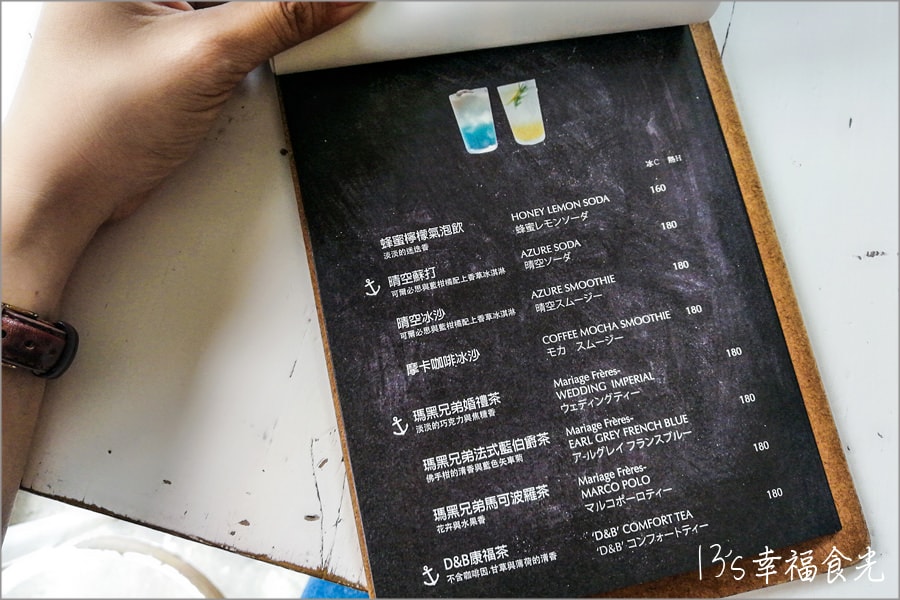 冰C 熱H
蜂蜜檸檬氣泡飲 HONEY LEMON SODA 160
淡淡的迷迭香 蜂蜜レモンソーダ
晴空蘇打 AZURE SODA 180
可爾必思與藍柑橘配上香草冰淇淋 晴空ソーダ
晴空冰沙 AZURE SMOOTHIE 180
可爾必思與藍柑橘配上香草冰淇淋 晴空スムージー
摩卡咖啡冰沙 COFFEE MOCHA SMOOTHIE 180
モカ スムージー
瑪黑兄弟婚禮茶 Mariage Frères- 180
淡淡的巧克力與焦糖香 WEDDING IMPERIAL
ウェディングティー
瑪黑兄弟法式藍伯爵茶 Mariage Frères- 180
佛手柑的清香與藍色矢車菊 EARL GREY FRENCH BLUE
アールグレイ フランスブルー
瑪黑兄弟馬可波羅茶 Mariage Frères- 180
花卉與水果香 MARCO POLO
マルコポーロティー
D&B康福茶 'D&B' COMFORT TEA 180
不含咖啡因,甘草與薄荷的清香 'D&B' コンフォートティー
13's幸福食光